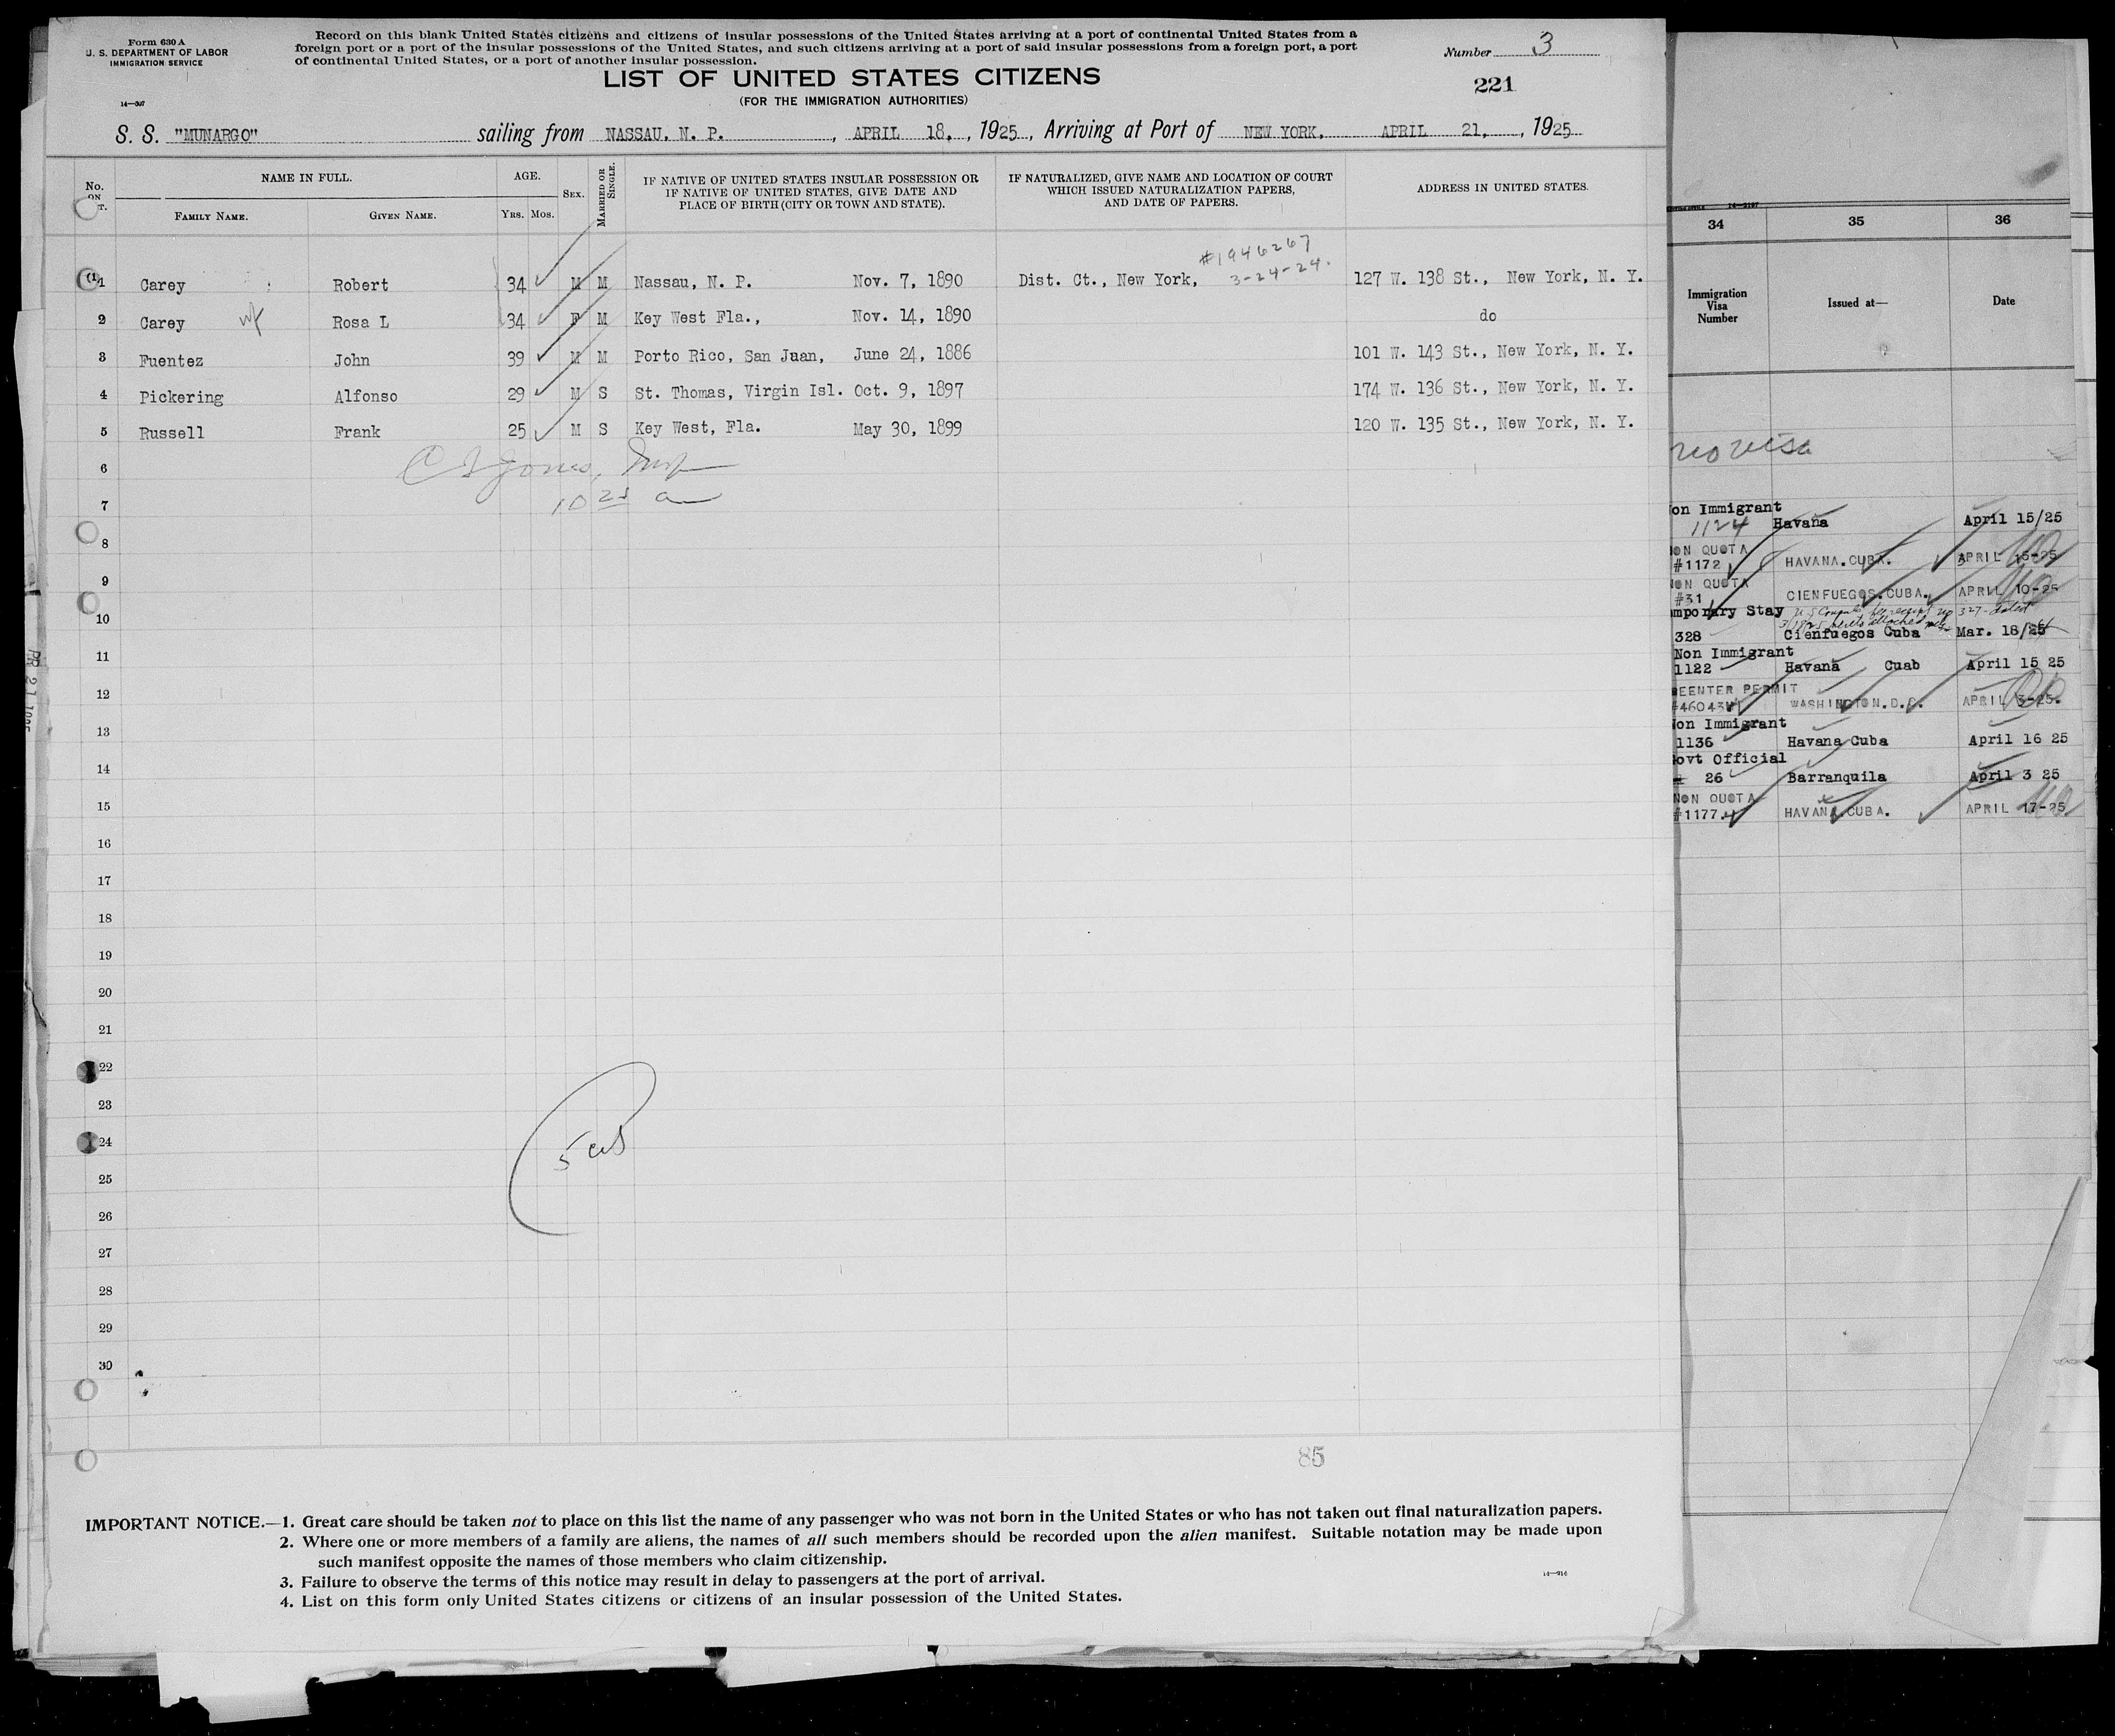 Form 630 A
U. S. DEPARTMENT OF LABOR
IMMIGRATION SERVICE
14—307
Record on this blank United States citizens and citizens of insular possessions of the United States arriving at a port of continental United States from a
foreign port or a port of the insular possessions of the United States, and such citizens arriving at a port of said insular possessions from a foreign port, a port
of continental United States, or a port of another insular possession.
Number 3
LIST OF UNITED STATES CITIZENS
(FOR THE IMMIGRATION AUTHORITIES)
221
S. S. "MUNARGO" sailing from NASSAU, N. P. , APRIL 18, , 1925 , Arriving at Port of NEW YORK, APRIL 21, , 1925
No. ON T.
NAME IN FULL.
FAMILY NAME. GIVEN NAME.
AGE.
YRS. MOS.
SEX.
MARRIED OR SINGLE.
IF NATIVE OF UNITED STATES INSULAR POSSESSION OR
IF NATIVE OF UNITED STATES, GIVE DATE AND
PLACE OF BIRTH (CITY OR TOWN AND STATE).
IF NATURALIZED, GIVE NAME AND LOCATION OF COURT
WHICH ISSUED NATURALIZATION PAPERS,
AND DATE OF PAPERS.
ADDRESS IN UNITED STATES.
#1946267
3-24-24.
1 Carey Robert 34 M M Nassau, N. P. Nov. 7, 1890 Dist. Ct., New York, 127 W. 138 St., New York, N. Y.
2 Carey wf Rosa L 34 F M Key West Fla., Nov. 14, 1890 do
3 Fuentez John 39 M M Porto Rico, San Juan, June 24, 1886 101 W. 143 St., New York, N. Y.
4 Pickering Alfonso 29 M S St. Thomas, Virgin Isl. Oct. 9, 1897 174 W. 136 St., New York, N. Y.
5 Russell Frank 25 M S Key West, Fla. May 30, 1899 120 W. 135 St., New York, N. Y.
6 Jones, Insp
7
8
9
10
11
12
13
14
15
16
17
18
19
20
21
22
23
24
25
26
27
28
29
30
85
IMPORTANT NOTICE.—1. Great care should be taken not to place on this list the name of any passenger who was not born in the United States or who has not taken out final naturalization papers.
2. Where one or more members of a family are aliens, the names of all such members should be recorded upon the alien manifest. Suitable notation may be made upon
such manifest opposite the names of those members who claim citizenship.
3. Failure to observe the terms of this notice may result in delay to passengers at the port of arrival.
4. List on this form only United States citizens or citizens of an insular possession of the United States.
14—916
34 35 36
Immigration
Visa
Number
Issued at—
Date
no visa
on Immigrant
1124 Havana April 15/25
ON QUOTA
#1172 HAVANA.CUBA. APRIL 15-25
ON QUOTA
#31 CIENFUEGOS.CUBA. APRIL 10-25
mporary Stay
328 Cienfuegos Cuba Mar. 18/25
Non Immigrant
1122 Havana Cuab April 15 25
REENTER PERMIT
WASHINGTON.D.C. APRIL 3-25.
on Immigrant
1136 Havana Cuba April 16 25
ovt Official
26 Barranquila April 3 25
NON QUOTA
#1177 HAVANA.CUBA. APRIL 17-25